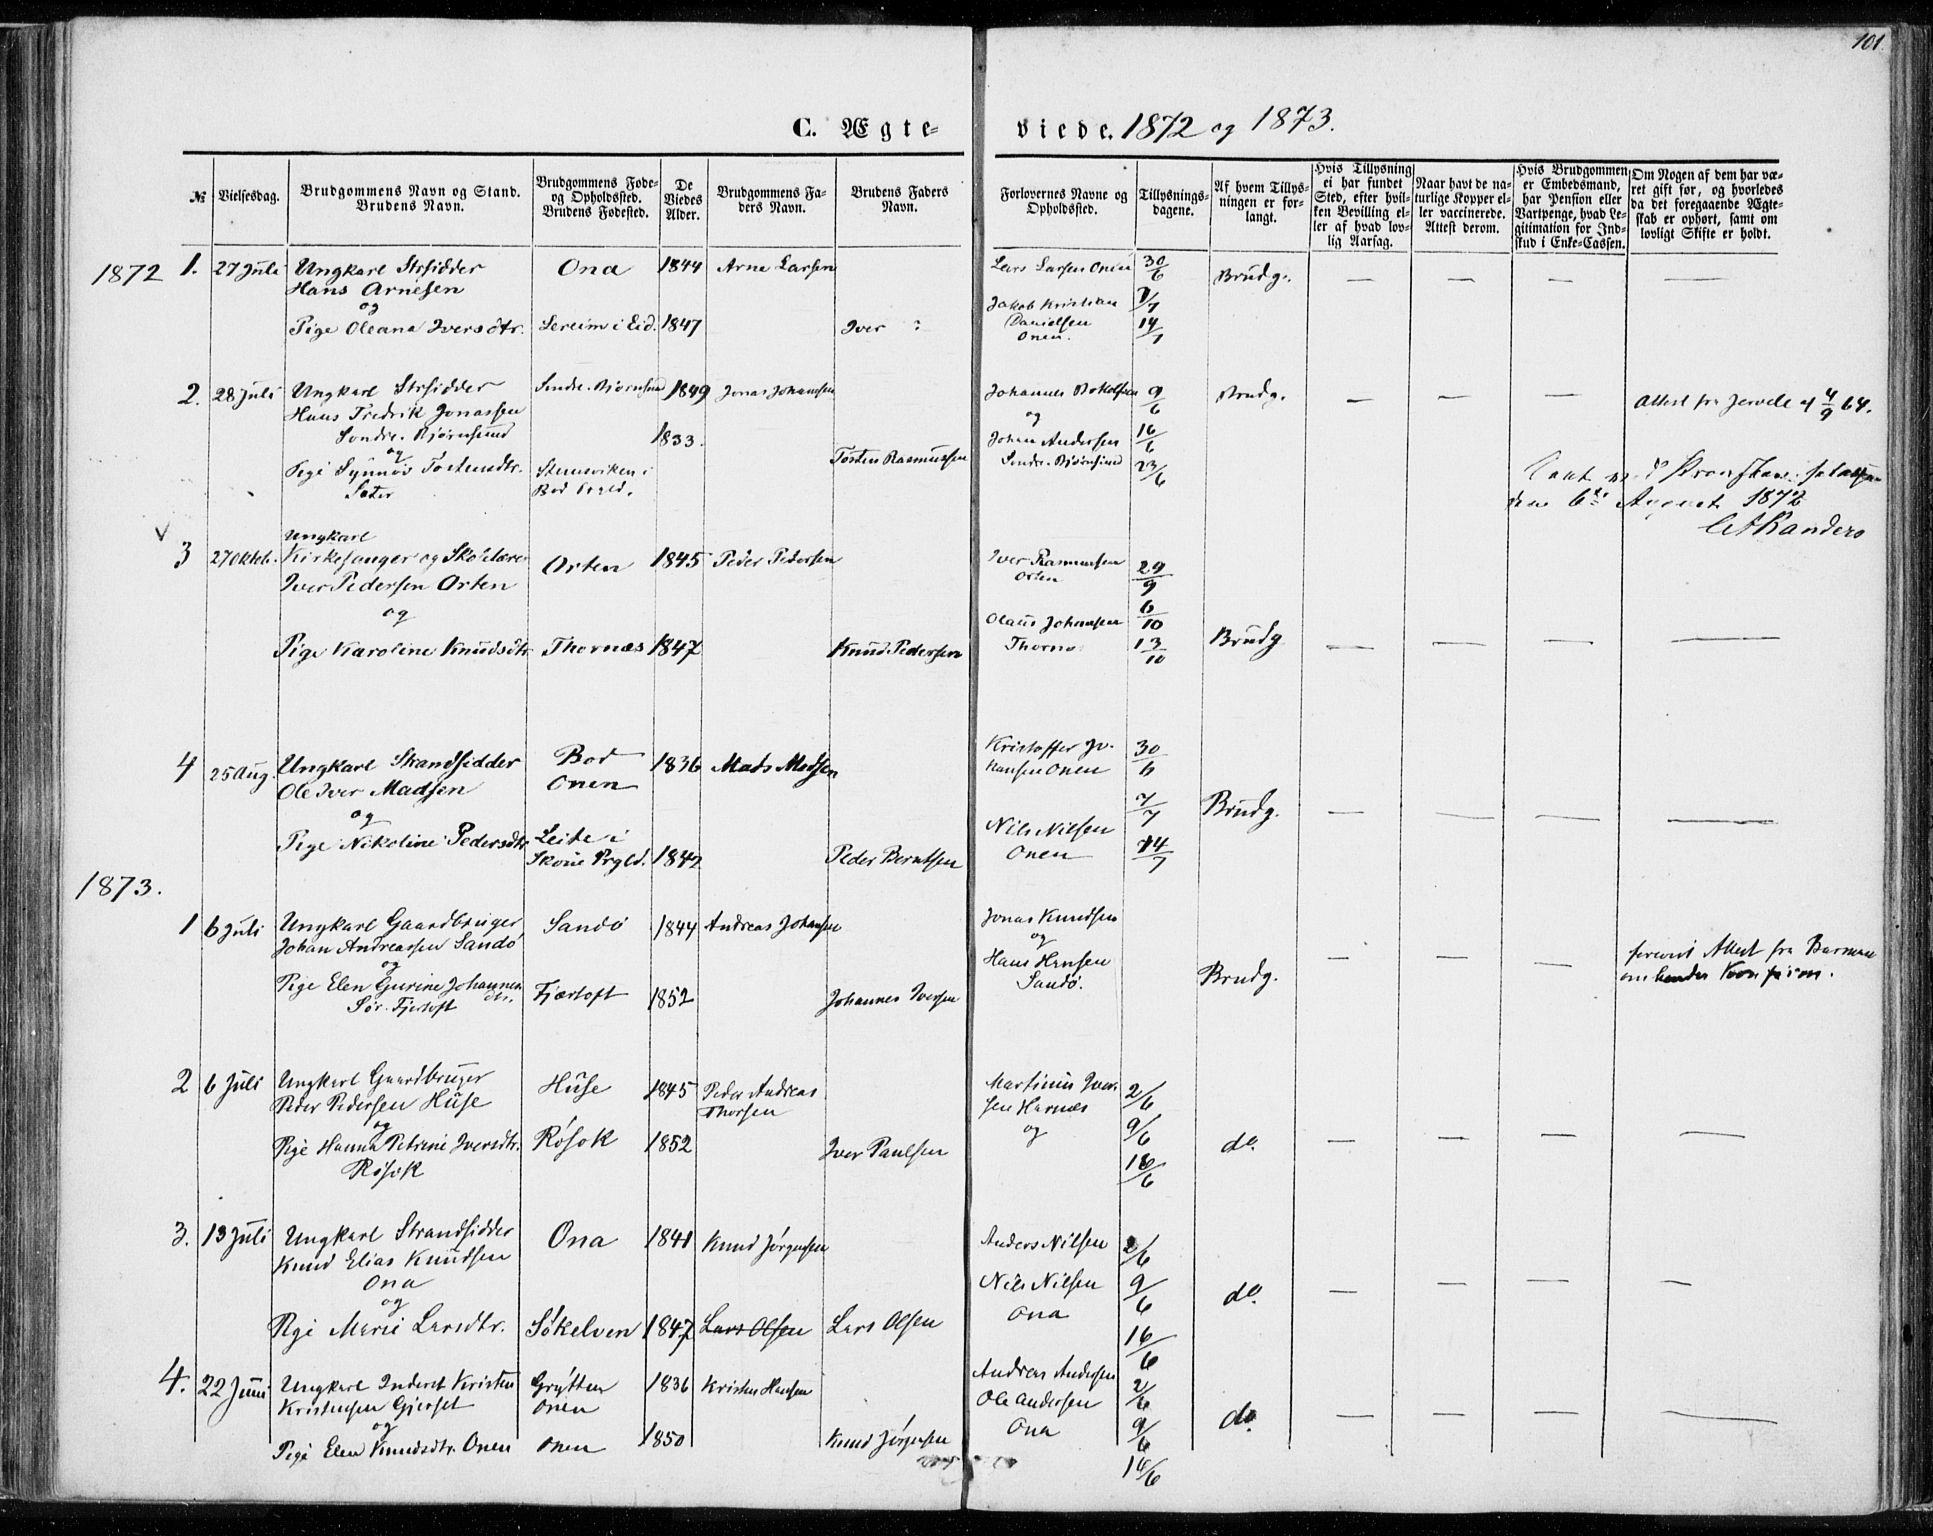 101
C. Ægte-
viede. 1872 og 1873.
№
Vielsesdag.
Brudgommens Navn og Stand.
Brudens Navn.
Brudgommens Føde-
og Opholdssted.
Brudens Fødested.
De
Viedes
Alder.
Brudgommens Fa-
ders Navn.
Brudens Faders
Navn.
Forlovernes Navne og
Opholdssted.
Tillysnings-
dagene.
Af hvem Tillys-
ningen er for-
langt.
Hvis Tillysning
ei har fundet
Sted, efter hvil-
ken Bevilling el-
ler af hvad lov-
lig Aarsag.
Naar havt de na-
turlige Kopper el-
ler vaccinerede.
Attest derom.
Hvis Brudgommen
er Embedsmand,
har Pension eller
Vartpenge, hvad Le-
gitimation for Ind-
skud i Enke-Cassen.
Om Nogen af dem har væ-
ret gift før, og hvorledes
da det foregaaende Ægte-
skab er ophørt, samt om
lovligt Skifte er holdt.
1872 1. 27 Juli Ungkarl Strsidder Ona 1844 Arne Larsen Lars Larsen Onen 30/6 Brudg. — — — —
Hans Arnesen
og Jakob Kristian 7/7
Pige Oleana Iversdtr. Lereim i Eid. 1847 Iver Danielsen 14/7
Onen.
2. 28 Juli Ungkarl Strsidder Søndr. Bjørnsund 1849 Jonas Johansen Johannes 9/6 Brudg. — — — Attest fra Jervele af 4/9 64.
Hans Fredrik Jonassen og
Søndre. Bjørnsund 1833. Johan Andersen 16/6
og Søndr. Bjørnsund 23/6
Pige Synnøv Tostensdtr. Stenneviken i Tosten Rasmussen
Sæter Bod Prgld.
den 6te August 1872
Randers
V 3 27 Oktob. Ungkarl
Kirkesanger og Skolelærer Orten 1845 Peder Pedersen Iver Rasmussen 29/9
Iver Pedersen Orten Orten
og Olaus Johansen 6/10
Pige Karoline Knudsdtr. Thornæs 1847 Knud Pedersen Thornæs 13/10 Brudg — — — —
4 25 Aug. Ungkarl Strandsidder Bod 1836 Mads Madsen Kristoffer Jo- 30/6
Ole Iver Madsen Onen hansen Onen
og 7/7 Brudg. — — — —
Pige Nikoline Pedersdtr. Leite i Nils Nilsen
Skoue Prgld. 1842 Peder Berntsen Onen 14/7
1873.
1 6 Juli Ungkarl Gaardbruger Sandø 1844 Andreas Johansen Jonas Knudsen
Johan Andreassen Sandø og
og Hans Hansen Brudg. — — — forevist Attest fra
Pige Elen Gurine Johannes Fjærtoft 1852 Johannes Iversen Sandø. om hendes Konfirm.
dtr.
Sør. Fjertoft
2 6 Juli Ungkarl Gaardbruger Huse 1845 Peder Andreas Martinus Iver- 2/6
Peder Pedersen Huse Thorsen sen Harnæs
og og 9/6
Pige Hanna Petrine Iversdtr. Røsok 1852 Iver Paulsen do. — — — —
Røsok 16/6
3. 13 Juli Ungkarl Strandsidder Ona 1841 Knud Jørgensen Anders Nilsen 2/6
Knud Elias Knudsen
Ona Nils Nilsen 9/6 do. — — — —
og Ona
Pige Marie Larsdtr. Søkelven 1847 Lars Olsen Lars Olsen 16/6
4. 22 Juni Ungkarl Inderst Kristen Grytten 1836 Kristen Hansen Andreas Andersen 2/6
Kristensen Gjerset Onen Ole Andersen
og Ona 9/6 do. — — — —
Pige Elen Knudsdtr. Onen Onen 1850 Knud Jørgensen
14/6